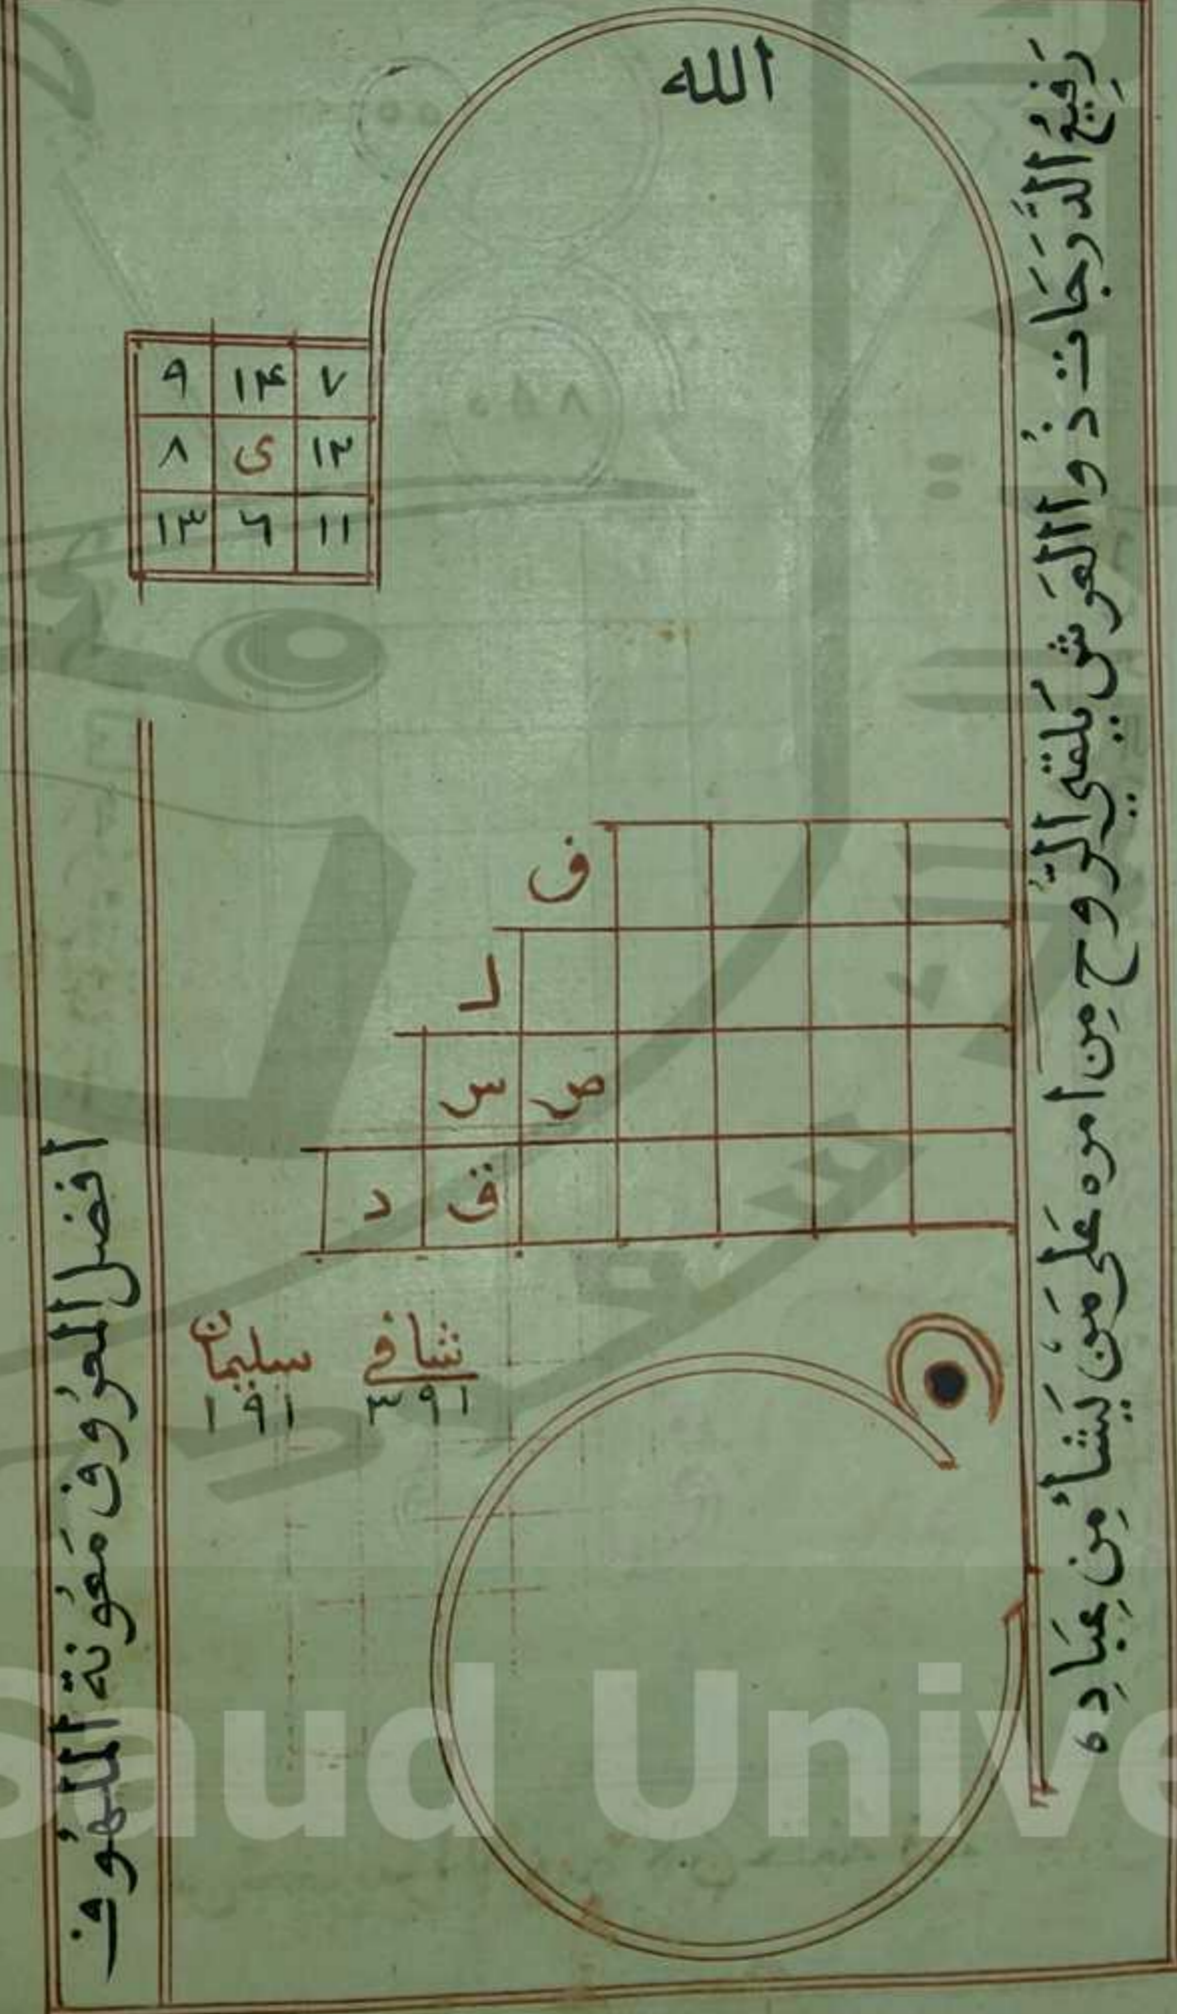 الله
رَفِيعُ الدَّرَجَات ذُو العَرش يُلقى الرُّوح مِن امره عَلى مَن يَشاءُ مِن عِبَادِه
٩ ١۴ ٧
٨ ى ١٢
١٣ ٦ ١١
ف
ل
س ص
د ق
سليمان شافي
١٩١ ٣٩١
افضل المعرُوف مَعُونة الملهُوف
Saud Unive